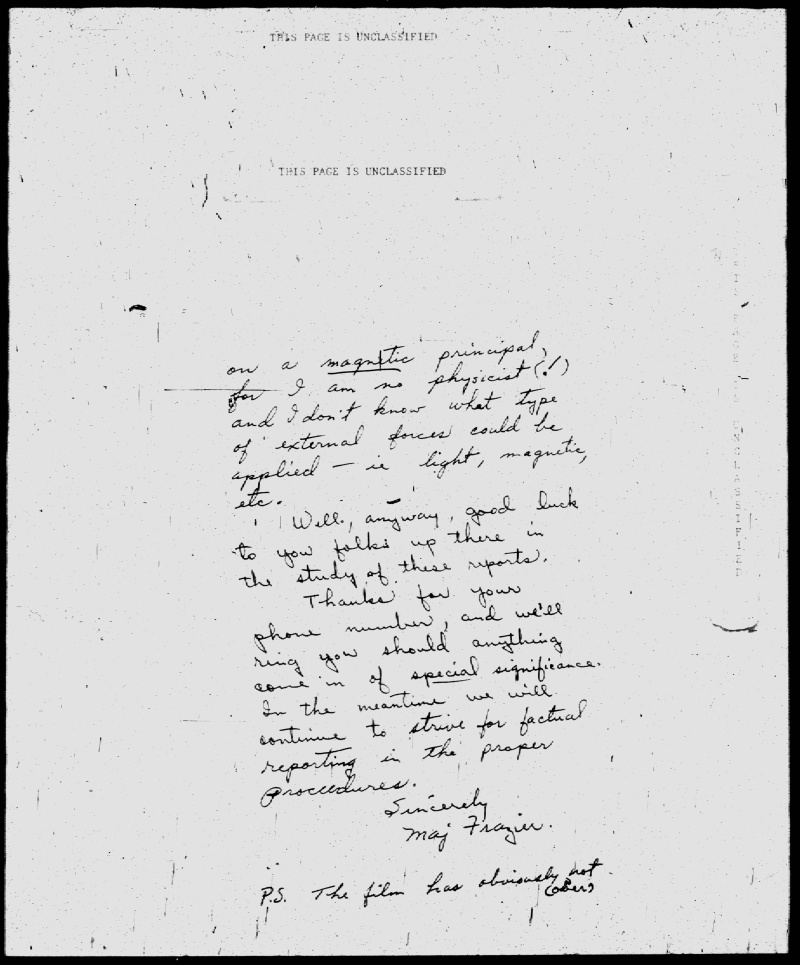 THIS PAGE IS UNCLASSIFIED
THIS PAGE IS UNCLASSIFIED
on a magnetic principal,
for I am no physicist (!)
and I don't know what type
of external forces could be
applied — ie light, magnetic,
etc.
Well, anyway, good luck
to you folks up there in
the study of these reports.
Thanks for your
phone number, and we'll
ring you should anything
come in of special significance.
In the meantime we will
continue to strive for factual
reporting in the proper
procedures.
Sincerely
Maj Frazier.
P.S. The film has obviously not
(over)